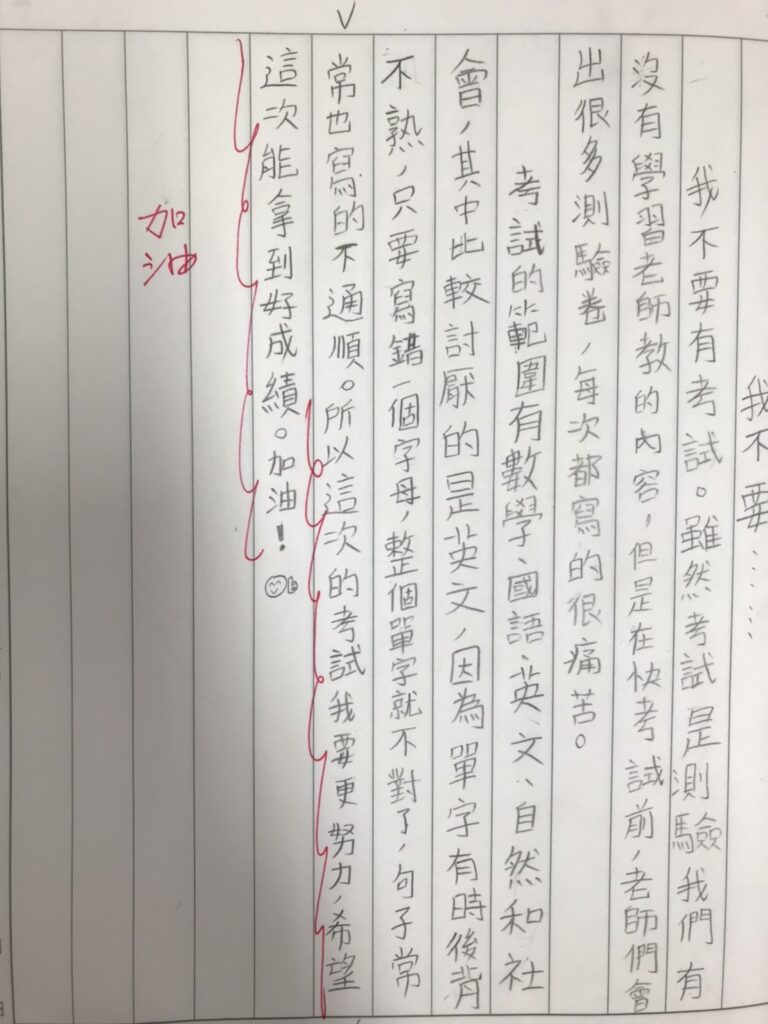 我不要……
我不要有考試。雖然考試是測驗我們有
沒有學習老師教的內容，但是在快考試前，老師們會
出很多測驗卷，每次都寫的很痛苦。
考試的範圍有數學、國語、英文、自然和社
會，其中比較討厭的是英文，因為單字有時後背
不熟，只要寫錯一個字母，整個單字就不對了，句子常
常也寫的不通順。所以這次的考試我要更努力，希望
這次能拿到好成績。加油！
加油